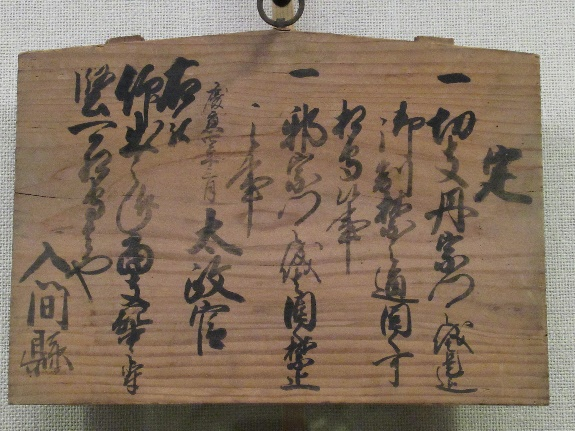 定
一 切支丹宗門之儀是迄
御制禁之通固く可
相守候事
一 邪宗門之儀固く禁止
之事
慶應四年三月 太政官
右被
仰出
堅可相守もの也
入間縣